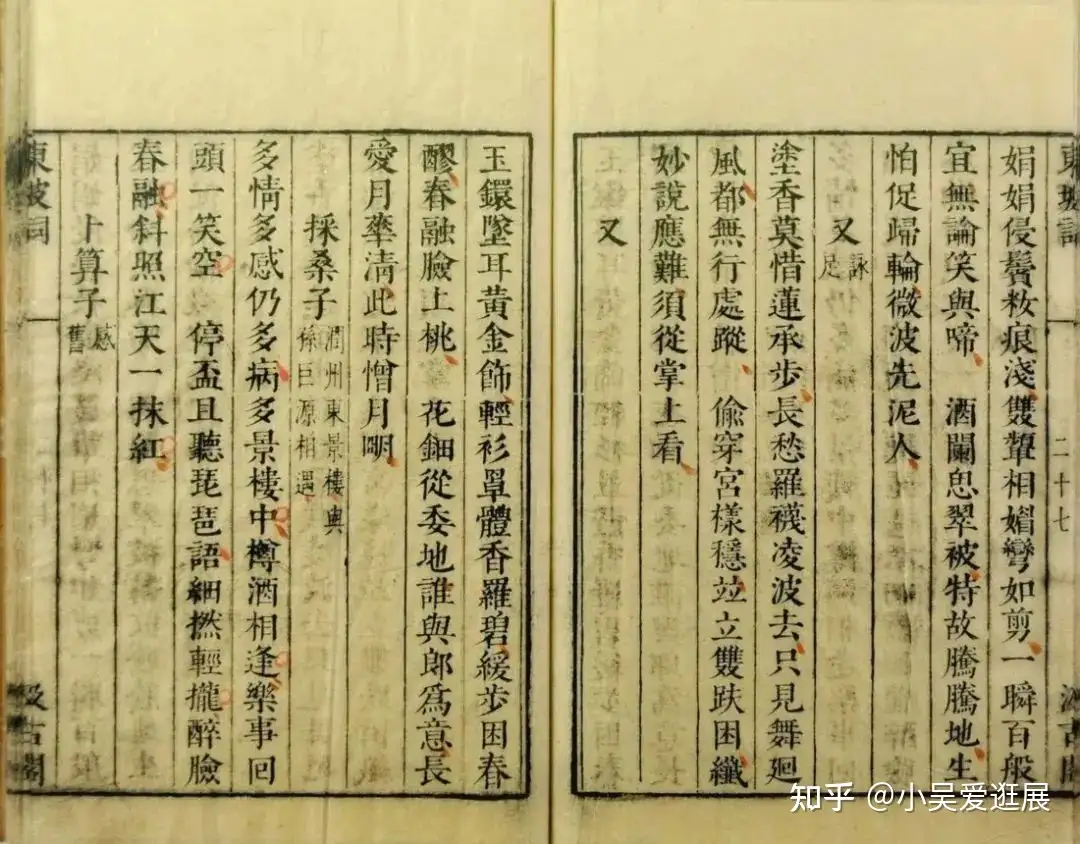 東坡詞 二十七 汲古閣
娟娟侵鬢妝痕淺雙顰相媚彎如剪一瞬百般
宜無論笑與啼 酒闌思翠被特故騰騰地生
怕促歸輪微波先泥人
又 詠足
塗香莫惜蓮承步長愁羅襪凌波去只見舞廻
風都無行處蹤 偷穿宮樣穩竝立雙趺困纖
妙說應難須從掌上看
又
玉鐶墜耳黃金飾輕衫罩體香羅碧緩步困春
醪春融臉上桃 花鈿從委地誰與郎爲意長
愛月華清此時憎月明
採桑子 潤州東景樓與孫巨源相遇
多情多感仍多病多景樓中樽酒相逢樂事回
頭一笑空 停盃且聽琵琶語細撚輕攏醉臉
春融斜照江天一抹紅
卜算子 感舊
東坡詞 汲古閣
知乎 @小吴爱逛展